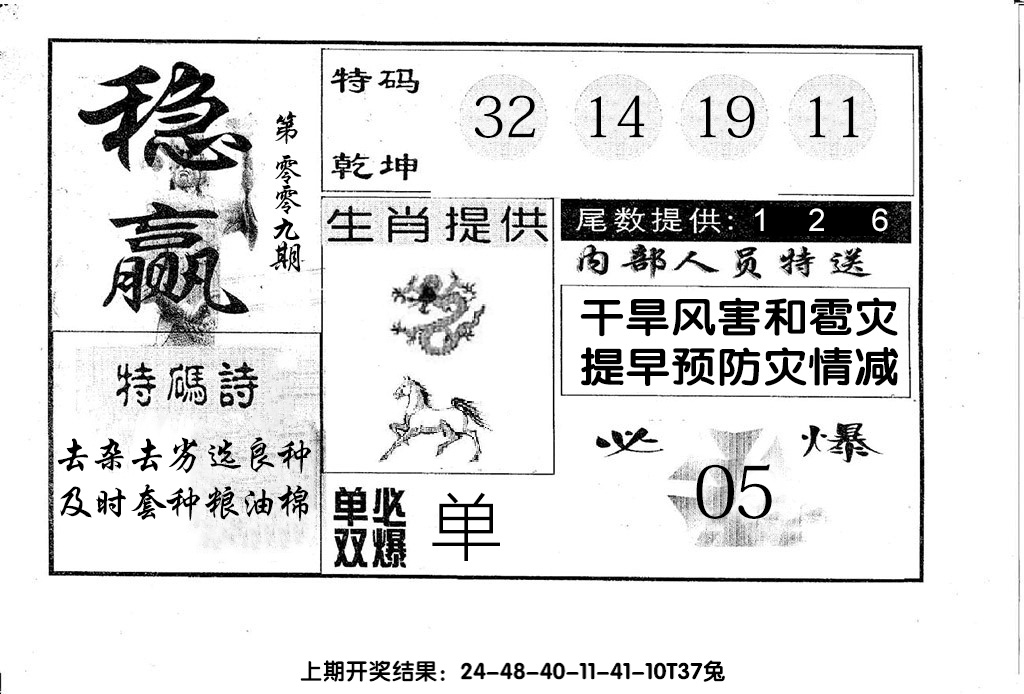 稳赢
第零零九期
特码
乾坤
32 14 19 11
生肖提供
尾数提供: 1 2 6
内部人员特送
干旱风害和雹灾
提早预防灾情减
特碼詩
去杂去劣选良种
及时套种粮油棉
单双
必爆
单
必爆
05
上期开奖结果：24-48-40-11-41-10T37兔